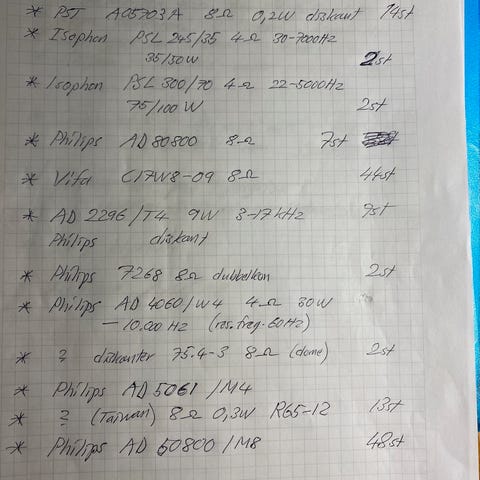 * PST A05703A 8Ω 0,2W diskant 14st
* Isophon PSL 245/35 4Ω 30-7000Hz
35/50W 2st
* Isophon PSL 300/70 4Ω 22-5000Hz
75/100 W 2st
* Philips AD 80800 8Ω 7st
* Vifa C17W8-09 8Ω 44st
* AD 2296/T4 9W 3-17kHz 9st
Philips diskant
* Philips 7268 8Ω dubbelkon 2st
* Philips AD 4060/W4 4Ω 30W
-10.000 Hz (res.freq. 60Hz)
* ? diskanter 75.4-3 8Ω (dome) 2st
* Philips AD 5061/M4
* ? (Taiwan) 8Ω 0,3W R65-12 13st
* Philips AD 50800/M8 48st